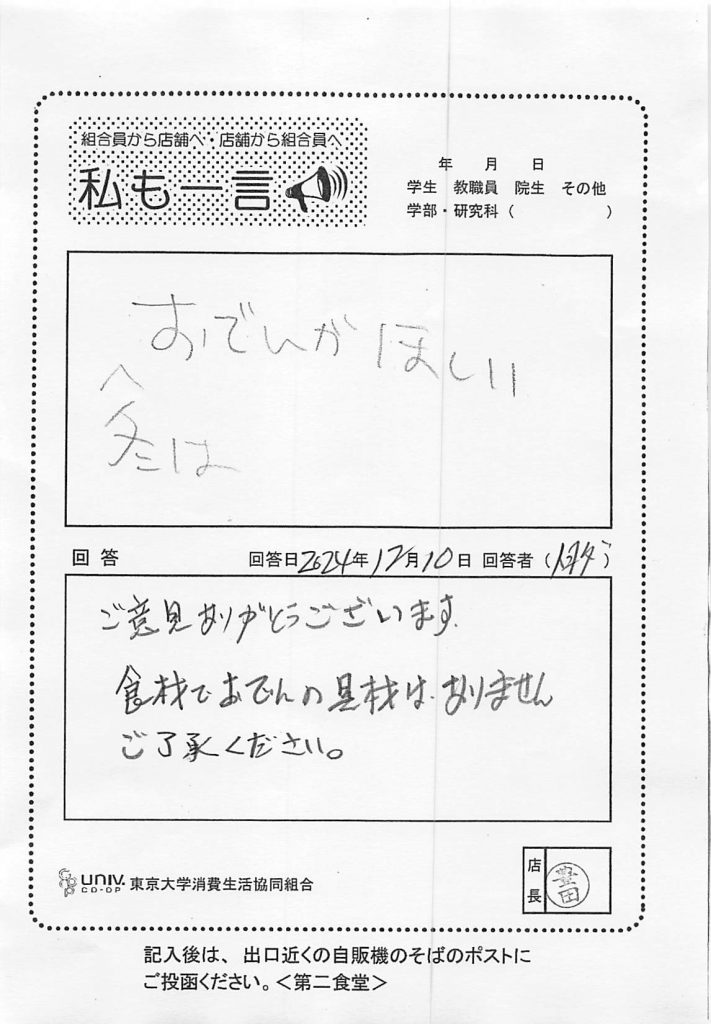 組合員から店舗へ・店舗から組合員へ
私も一言
年 月 日
学生 教職員 院生 その他
学部・研究科（ ）
おでんがほしい
冬は
回答
回答日2024年12月10日 回答者（ ）
ご意見ありがとうございます.
食材でおでんの具材は、ありません
ご了承ください。
UNIV. CO-OP 東京大学消費生活協同組合
店長
豊田
記入後は、出口近くの自販機のそばのポストに
ご投函ください。＜第二食堂＞